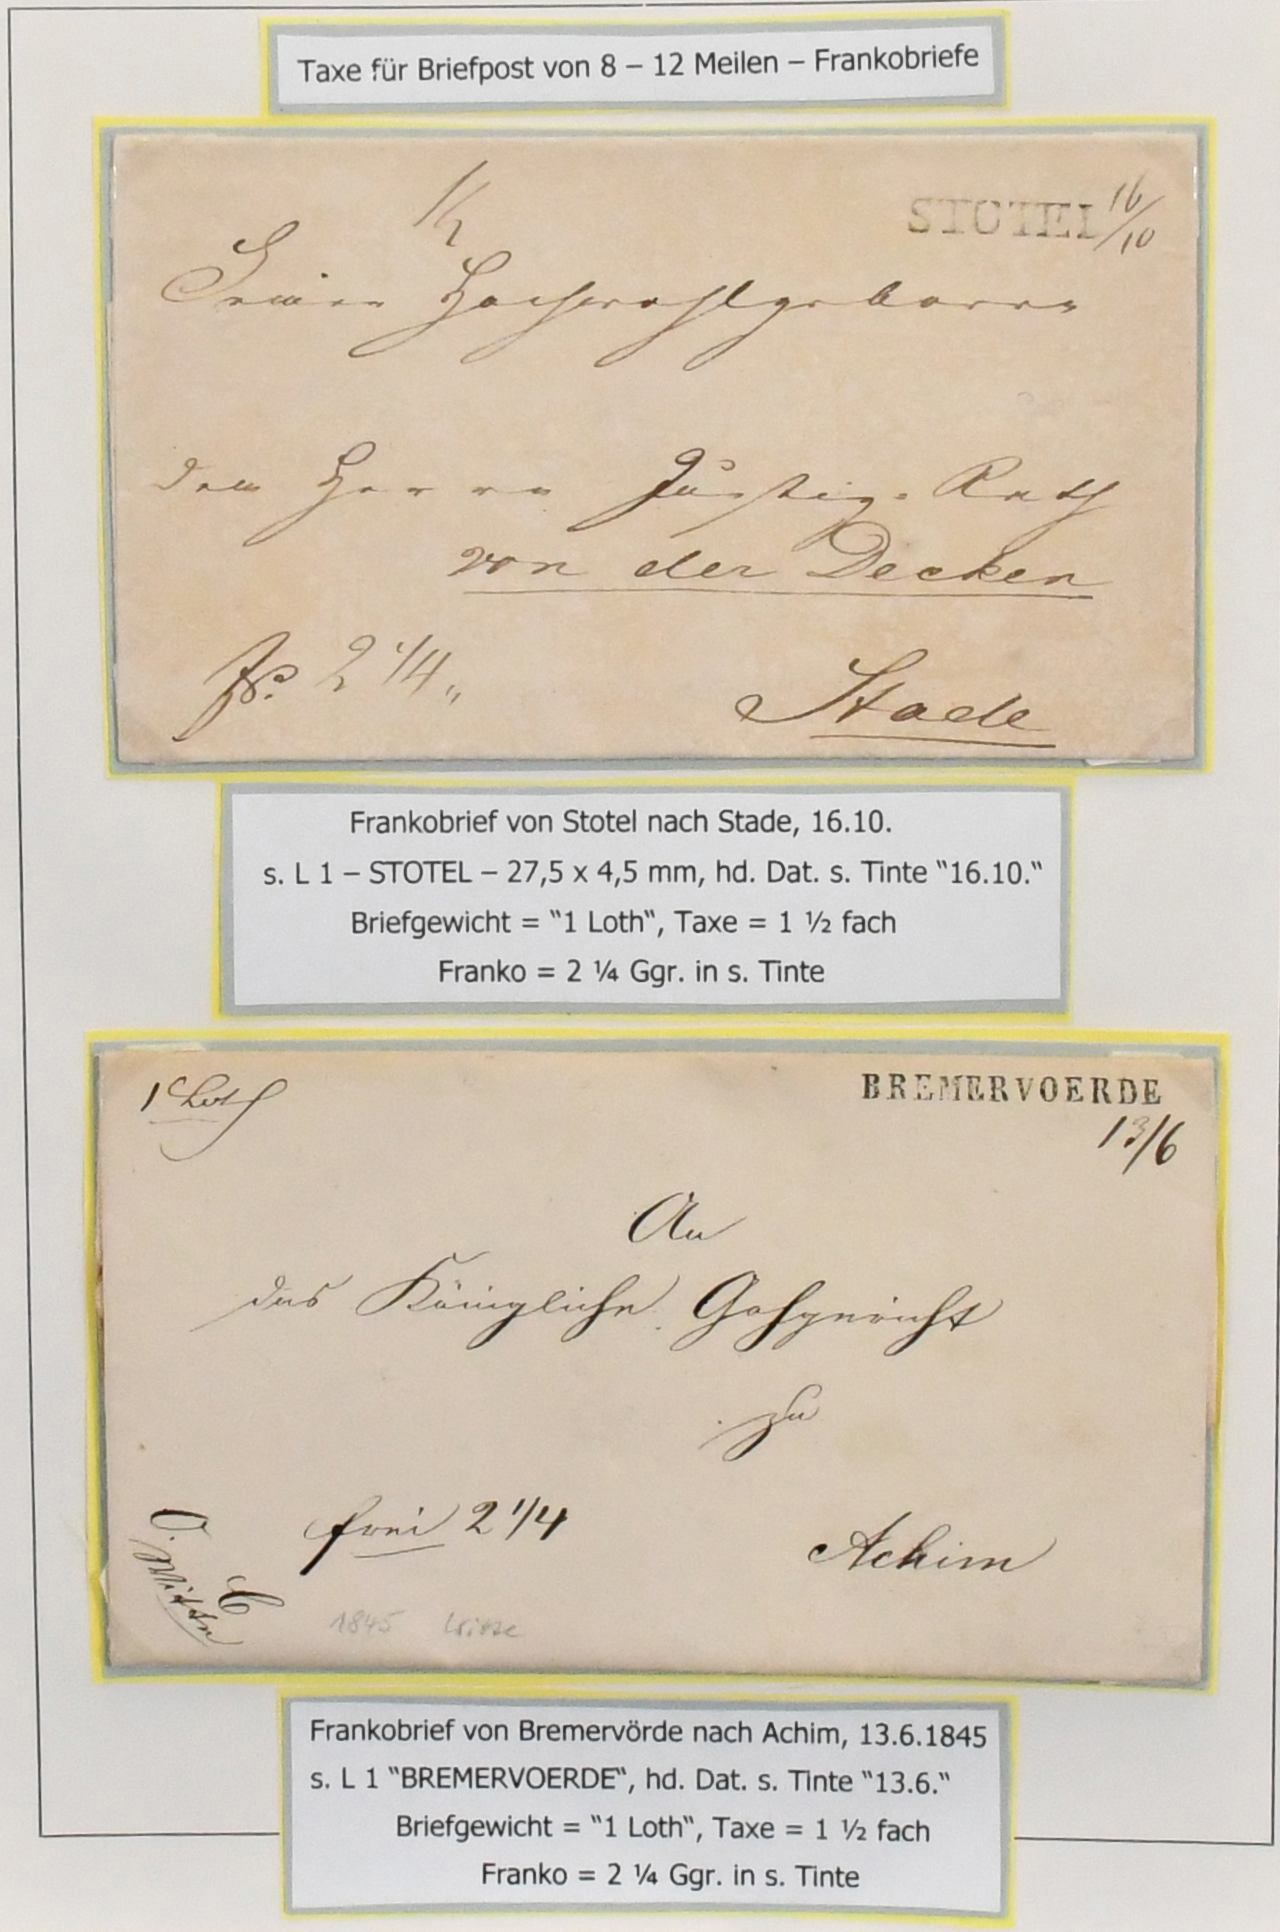 Taxe für Briefpost von 8 – 12 Meilen – Frankobriefe
STOTEL 16/10
Seiner Hochwohlgeboren
dem Herrn Justiz-Rath
von der Decken
2 1/4
Stade
Frankobrief von Stotel nach Stade, 16.10.
s. L 1 – STOTEL – 27,5 x 4,5 mm, hd. Dat. s. Tinte "16.10."
Briefgewicht = "1 Loth", Taxe = 1 ½ fach
Franko = 2 ¼ Ggr. in s. Tinte
1 Loth
BREMERVOERDE
13/6
An
das Königliche Gohgericht
zu
frei 2 1/4
Achim
1845
Frankobrief von Bremervörde nach Achim, 13.6.1845
s. L 1 "BREMERVOERDE", hd. Dat. s. Tinte "13.6."
Briefgewicht = "1 Loth", Taxe = 1 ½ fach
Franko = 2 ¼ Ggr. in s. Tinte